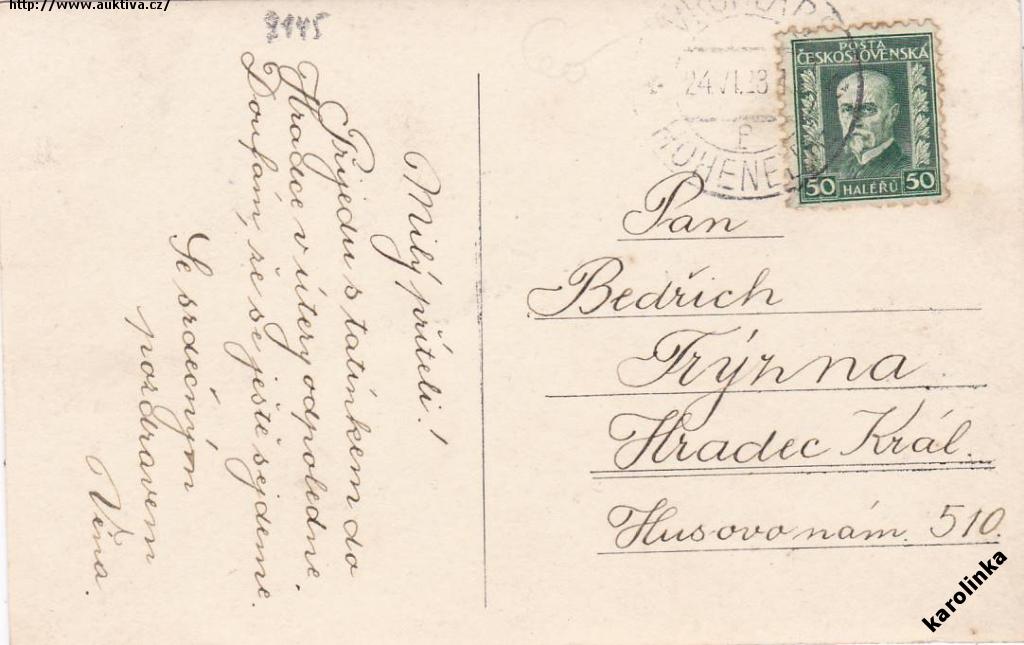 http://www.auktiva.cz/
9145
Milý příteli!
Přijedu s tatínkem do
Hradce v úterý odpoledne.
Doufám, že se ještě sejdeme.
Se srdečným
pozdravem
Věna.
24.VI.28
HOHENEL
POŠTA
ČESKOSLOVENSKÁ
50 HALÉŘŮ 50
Pan
Bedřich
Trýzna
Hradec Král.
Husovo nám. 510.
karolinka